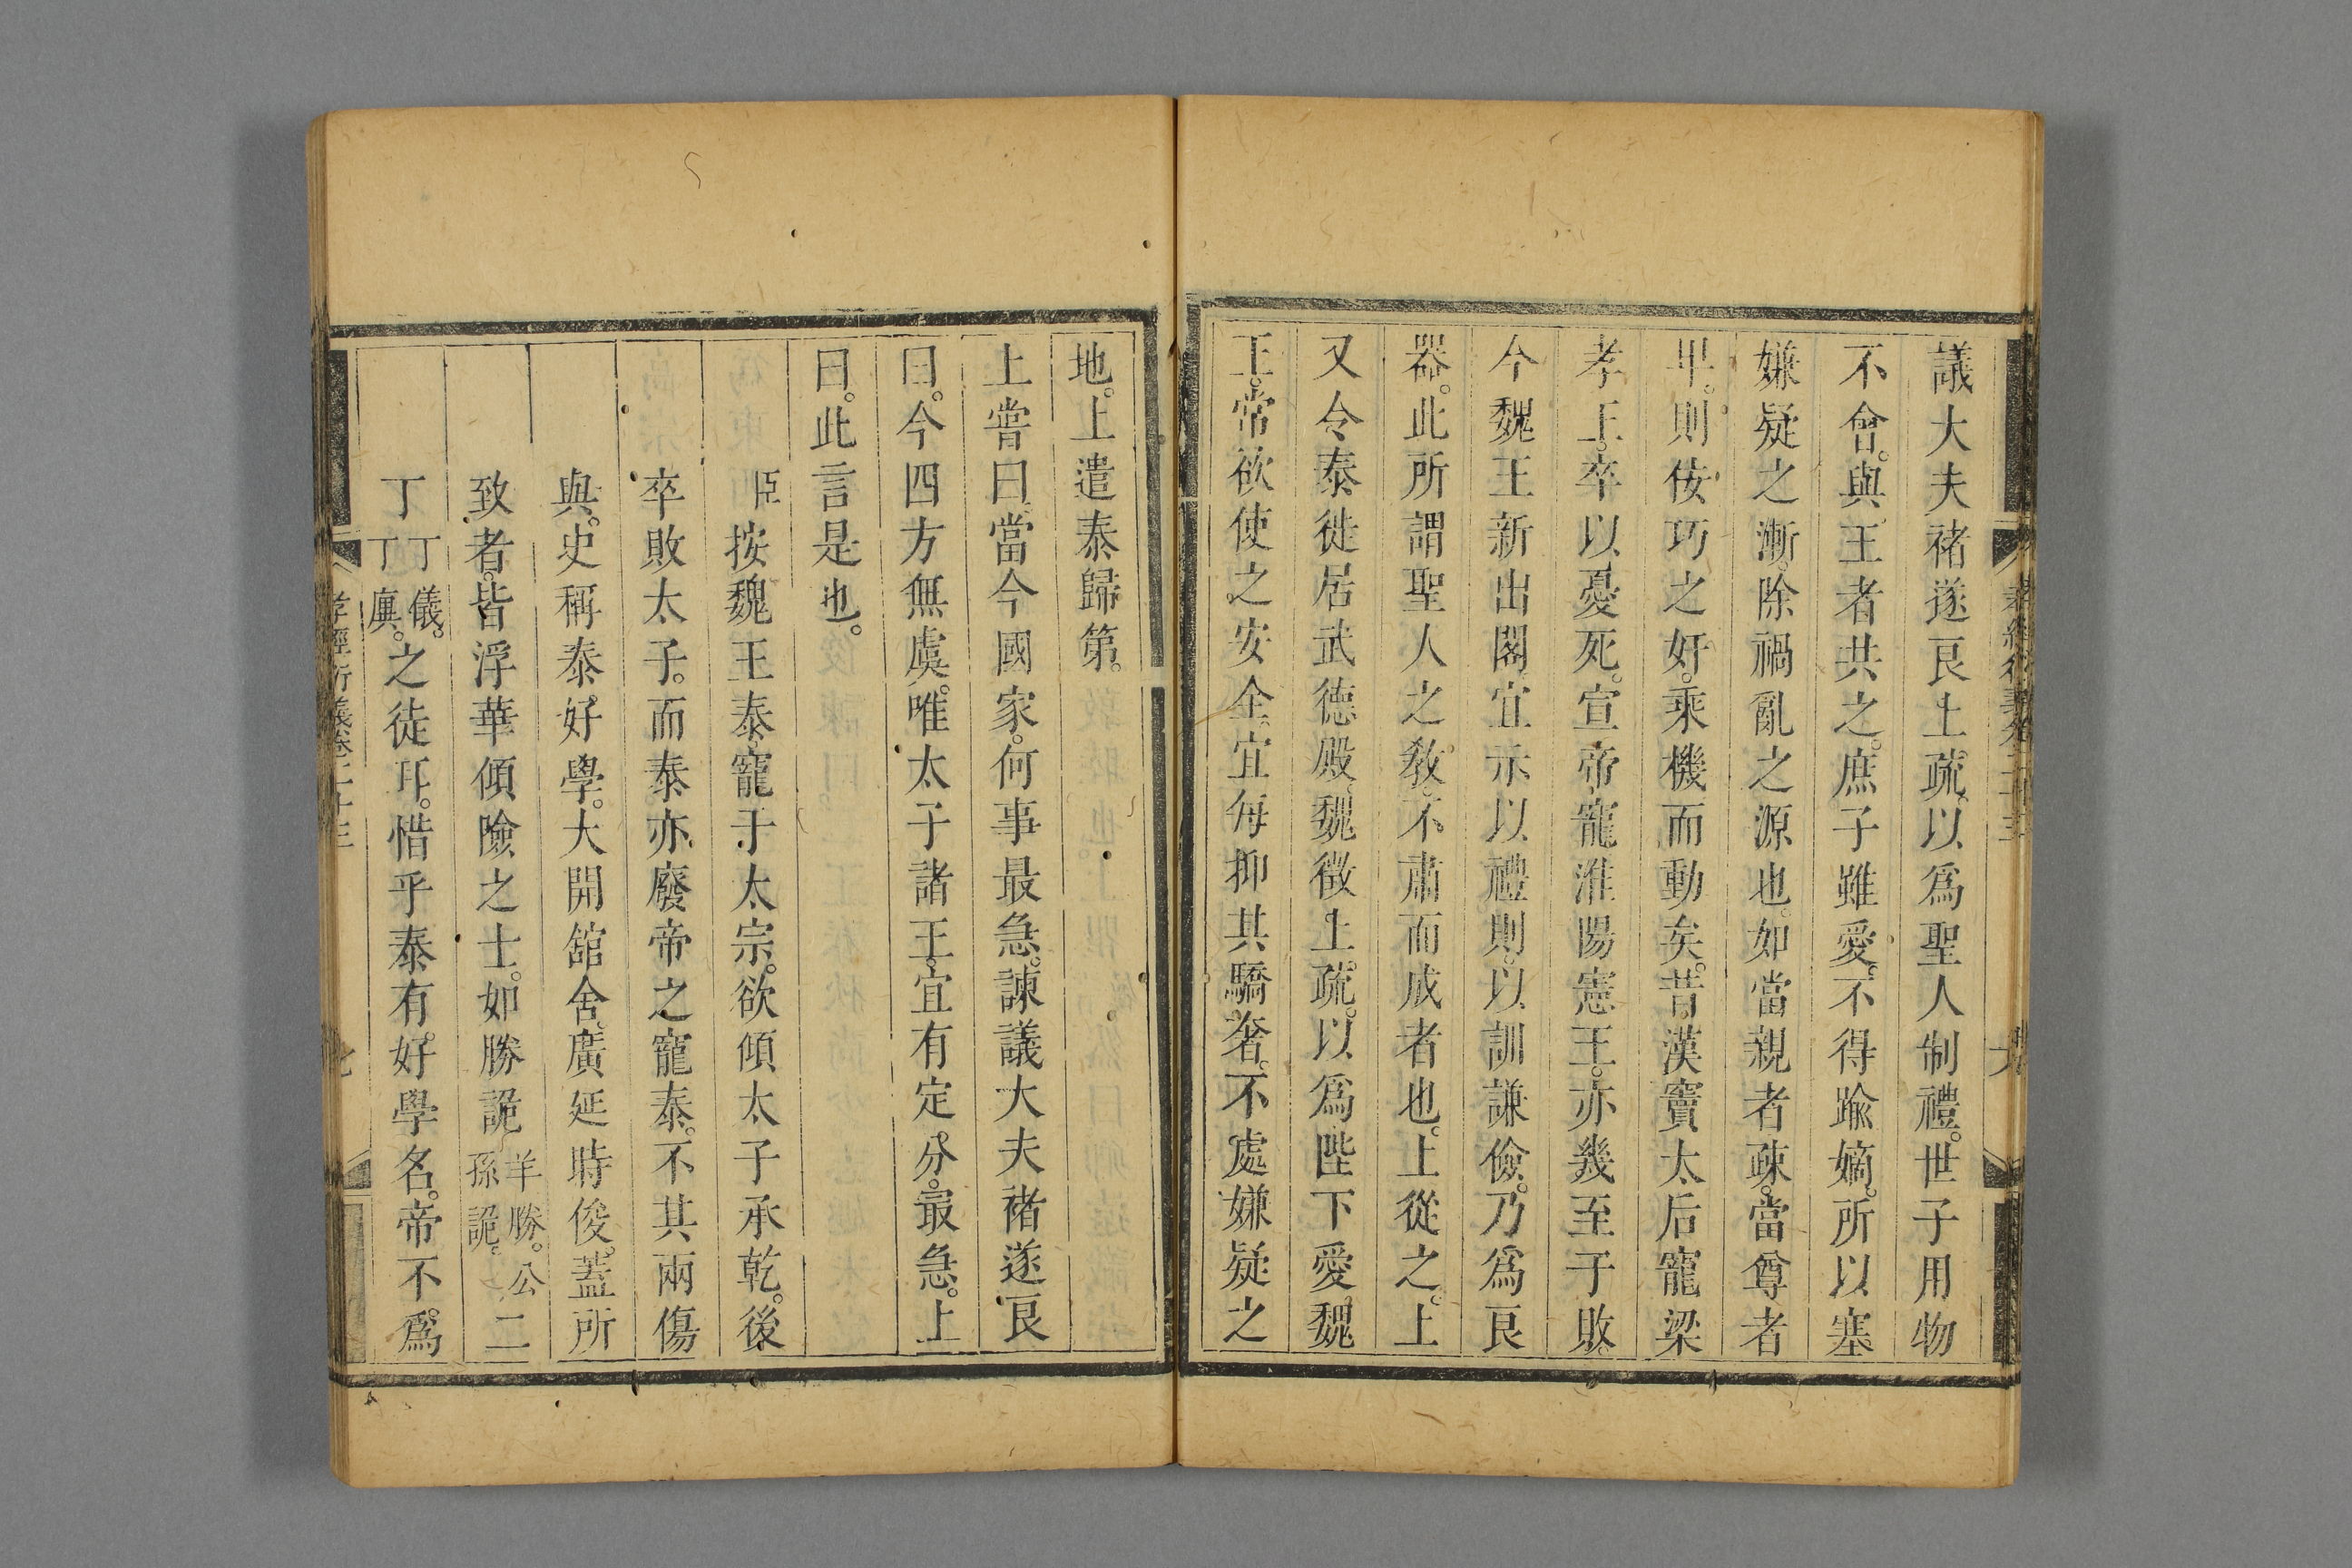 議大夫褚遂良上疏。以爲聖人制禮。世子用物
不會。與王者共之。庶子雖愛。不得踰嫡。所以塞
嫌疑之漸。除禍亂之源也。如當親者疎。當尊者
卑。則佞巧之奸。乘機而動矣。昔漢竇太后寵梁
孝王。卒以憂死。宣帝寵淮陽憲王。亦幾至于敗。
今魏王新出閣。宜示以禮則。以訓謙儉。乃爲良
器。此所謂聖人之教。不肅而成者也。上從之。上
又令泰徙居武德殿。魏徵上疏。以爲陛下愛魏
王。常欲使之安全。宜每抑其驕奢。不處嫌疑之
地。上遣泰歸第。
上嘗曰。當今國家。何事最急。諫議大夫褚遂良
曰。今四方無虞。唯太子諸王。宜有定分。最急。上
曰。此言是也。
臣按魏王泰。寵于太宗。欲傾太子承乾。後
卒敗太子。而泰亦廢。帝之寵泰。不其兩傷
與。史稱泰好學。大開舘舍。廣延時俊。蓋所
致者。皆浮華傾險之士。如勝詭羊勝。公孫詭。二
丁丁儀。丁廙。之徒耳。惜乎泰有好學名。帝不爲
孝經衍義卷二十三